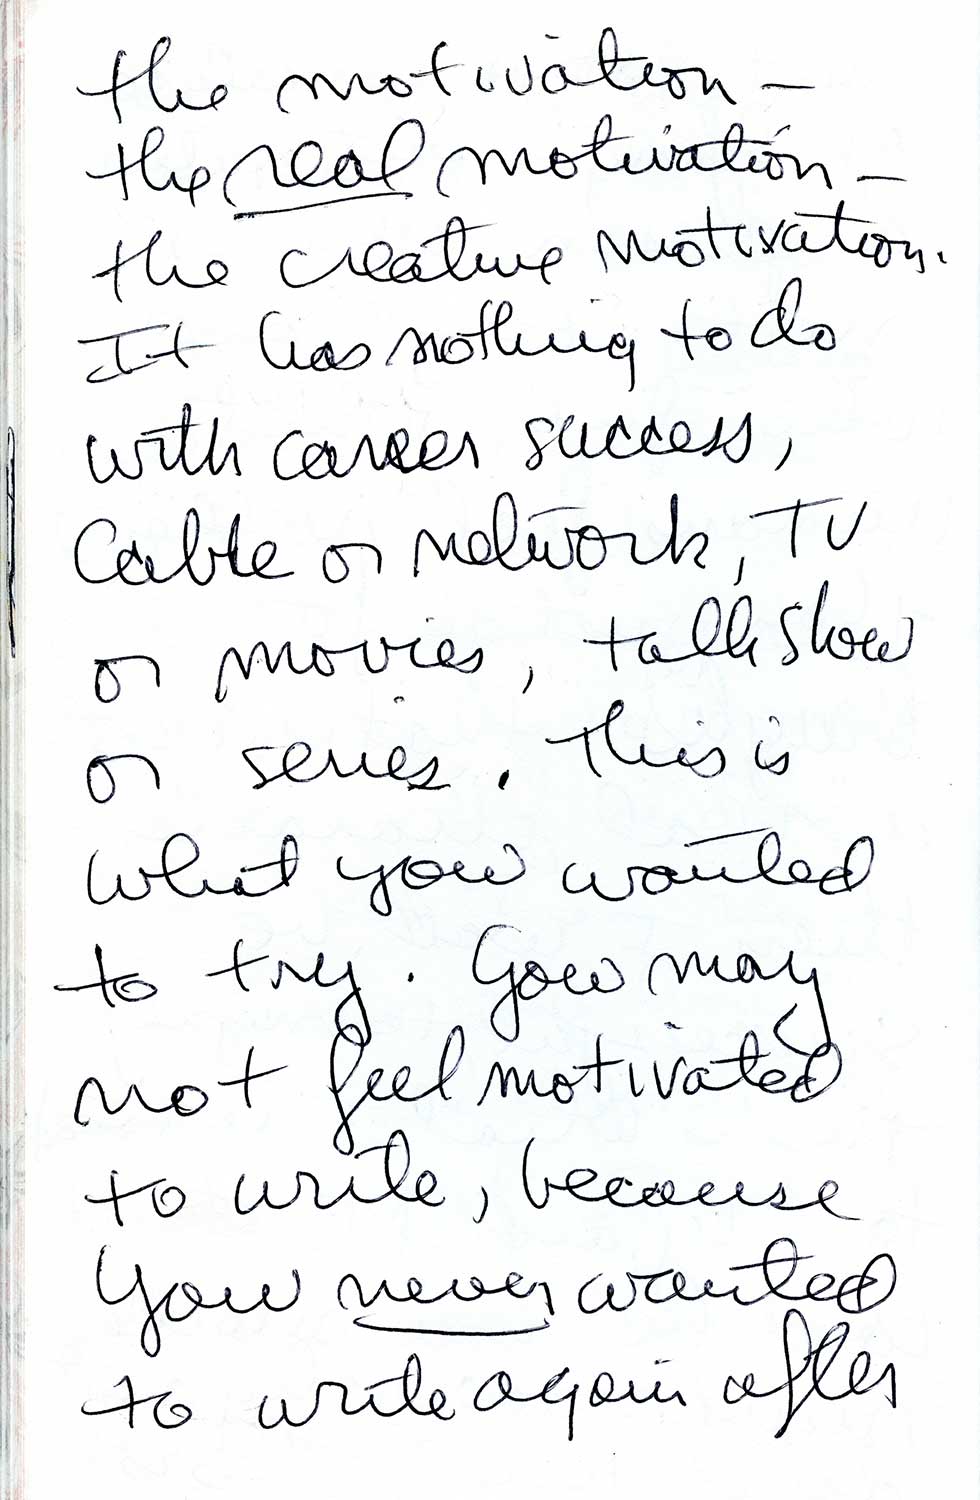 the motivation –
the real motivation –
the creative motivation.
It has nothing to do
with career success,
Cable or network, TV
or movies, talk show
or series. This is
what you wanted
to try. You may
not feel motivated
to write, because
you never wanted
to write again after